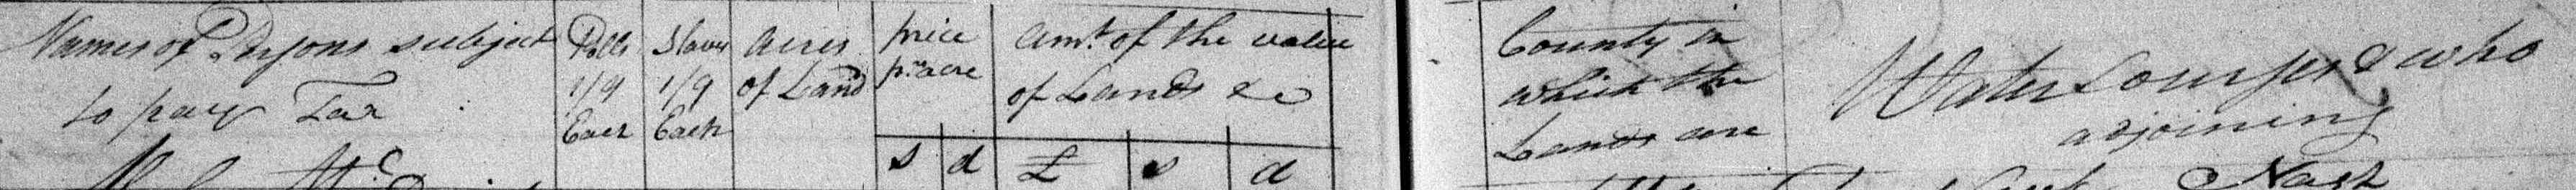 Names of Persons subject
to pay Tax
Polls
1/9
Each
Slaves
1/9
Each
Acres
of Land
price
pr acre
s d
Amt. of the value
of Lands &c
£ s d
County in
which the
Lands are
Water Courses & who
adjoining
Nash